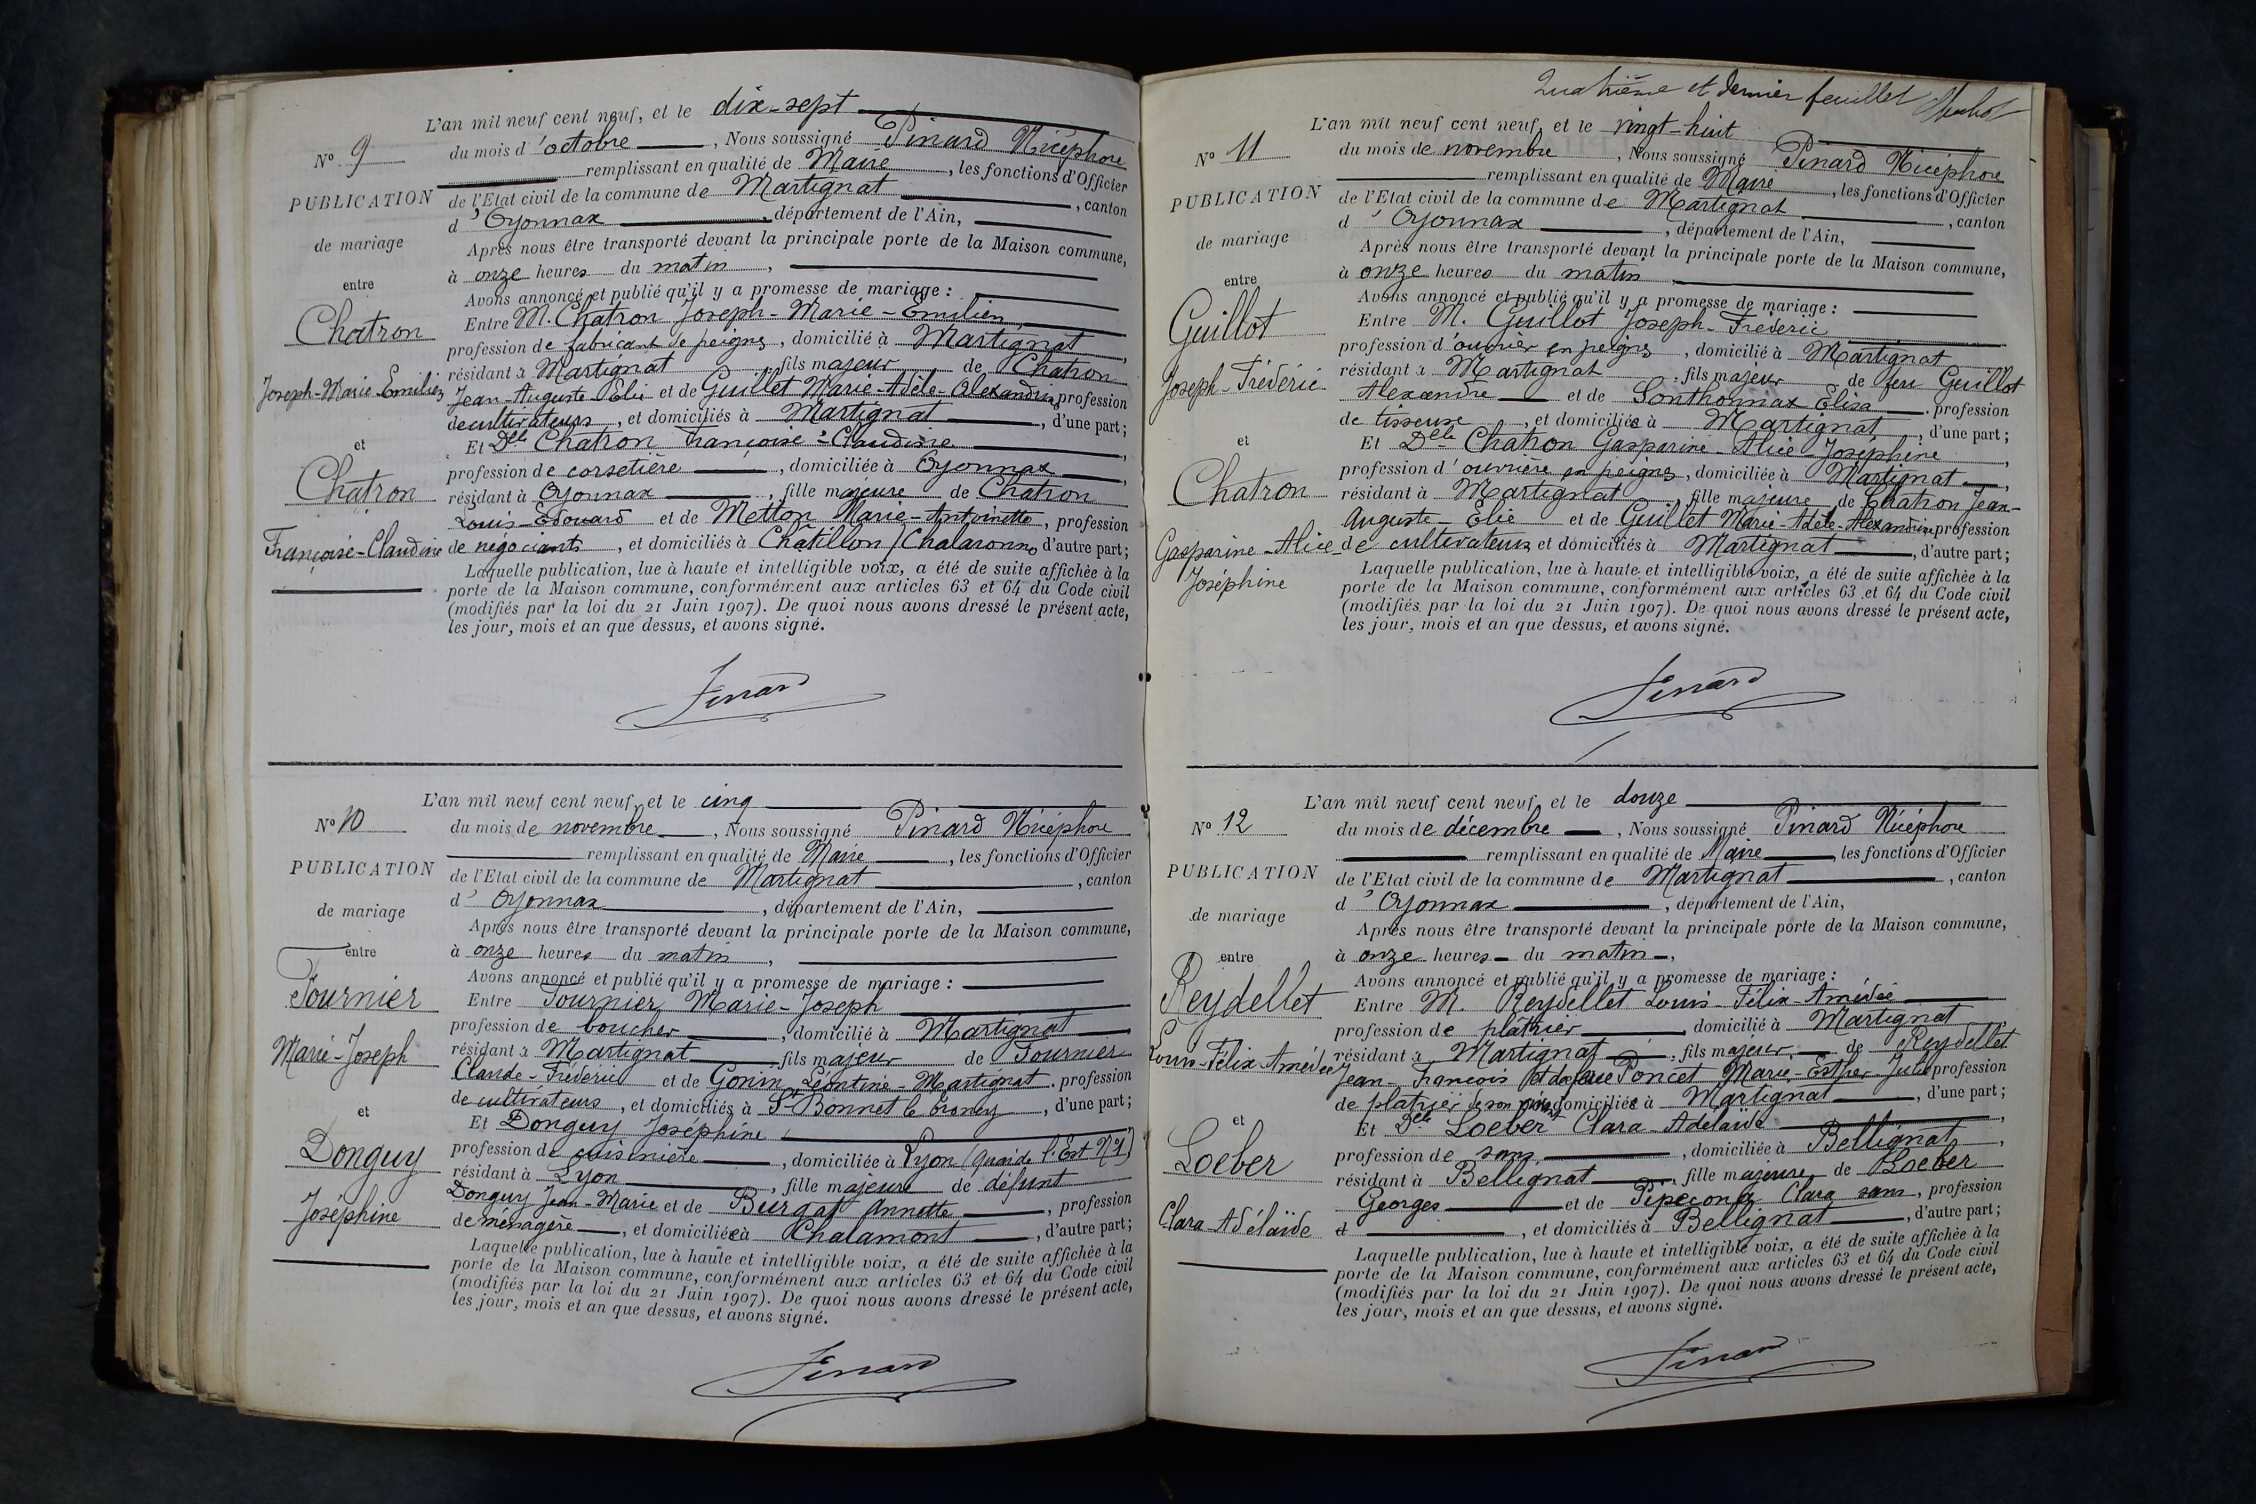 L'an mil neuf cent neuf, et le dix-sept
Nº 9
du mois d'octobre, Nous soussigné Pinard Nicéphore
remplissant en qualité de Maire, les fonctions d'Officier
PUBLICATION
de l'Etat civil de la commune de Martignat, canton
d'Oyonnax, département de l'Ain,
de mariage
Après nous être transporté devant la principale porte de la Maison commune,
à onze heures du matin,
entre
Avons annoncé et publié qu'il y a promesse de mariage :
Chatron
Entre M. Chatron Joseph-Marie-Emilien,
profession de fabricant de peignes, domicilié à Martignat,
résidant à Martignat, fils majeur de Chatron
Joseph-Marie-Emilien
Jean-Auguste Elie et de Guillet Marie-Adèle-Alexandrine, profession
de cultivateurs, et domiciliés à Martignat, d'une part;
et
Et Delle Chatron Françoise-Claudine,
Chatron
profession de corsetière, domiciliée à Oyonnax,
résidant à Oyonnax, fille majeure de Chatron
Louis-Edouard et de Metton Marie-Antoinette, profession
Françoise-Claudine
de négociants, et domiciliés à Chatillon / Chalaronne, d'autre part;
Laquelle publication, lue à haute et intelligible voix, a été de suite affichée à la
porte de la Maison commune, conformément aux articles 63 et 64 du Code civil
(modifiés par la loi du 21 Juin 1907). De quoi nous avons dressé le présent acte,
les jour, mois et an que dessus, et avons signé.
Pinard
L'an mil neuf cent neuf, et le cinq
Nº 10
du mois de novembre, Nous soussigné Pinard Nicéphore
remplissant en qualité de Maire, les fonctions d'Officier
PUBLICATION
de l'Etat civil de la commune de Martignat, canton
d'Oyonnax, département de l'Ain,
de mariage
Après nous être transporté devant la principale porte de la Maison commune,
entre
à onze heures du matin,
Avons annoncé et publié qu'il y a promesse de mariage :
Fournier
Entre Fournier Marie-Joseph
profession de boucher, domicilié à Martignat,
Marie-Joseph
résidant à Martignat, fils majeur de Fournier
Claude-Fréderic et de Gonin Léontine-Martignat, profession
de cultivateurs, et domiciliés à St Bonnet le Troncy, d'une part;
et
Et Donguy Joséphine
Donguy
profession de cuisinière, domiciliée à Lyon (quai de l'Est Nº 4)
résidant à Lyon, fille majeure de défunt
Joséphine
Donguy Jean-Marie et de Burgat Annette, profession
de ménagère, et domiciliée à Chalamont, d'autre part;
Laquelle publication, lue à haute et intelligible voix, a été de suite affichée à la
porte de la Maison commune, conformément aux articles 63 et 64 du Code civil
(modifiés par la loi du 21 Juin 1907). De quoi nous avons dressé le présent acte,
les jour, mois et an que dessus, et avons signé.
Pinard
Quatrième et dernier feuillet
L'an mil neuf cent neuf, et le vingt-huit
Nº 11
du mois de novembre, Nous soussigné Pinard Nicéphore
remplissant en qualité de Maire, les fonctions d'Officier
PUBLICATION
de l'Etat civil de la commune de Martignat, canton
d'Oyonnax, département de l'Ain,
de mariage
Après nous être transporté devant la principale porte de la Maison commune,
à onze heures du matin
entre
Avons annoncé et publié qu'il y a promesse de mariage :
Guillot
Entre M. Guillot Joseph-Fréderic
profession d'ouvrier en peignes, domicilié à Martignat
résidant à Martignat, fils majeur de feu Guillot
Joseph-Fréderic
Alexandre et de Sonthonnax Elisa, profession
de tisseuse, et domiciliée à Martignat, d'une part;
et
Et Delle Chatron Gasparine-Alice-Joséphine,
profession d'ouvrière en peignes, domiciliée à Martignat,
Chatron
résidant à Martignat, fille majeure de Chatron Jean-
Auguste-Elie et de Guillet Marie-Adèle-Alexandrine profession
Gasparine-Alice-
de cultivateurs, et domiciliés à Martignat, d'autre part;
Joséphine
Laquelle publication, lue à haute et intelligible voix, a été de suite affichée à la
porte de la Maison commune, conformément aux articles 63 et 64 du Code civil
(modifiés par la loi du 21 Juin 1907). De quoi nous avons dressé le présent acte,
les jour, mois et an que dessus, et avons signé.
Pinard
L'an mil neuf cent neuf, et le douze
Nº 12
du mois de décembre, Nous soussigné Pinard Nicéphore
remplissant en qualité de Maire, les fonctions d'Officier
PUBLICATION
de l'Etat civil de la commune de Martignat, canton
d'Oyonnax, département de l'Ain,
de mariage
Après nous être transporté devant la principale porte de la Maison commune,
entre
à onze heures du matin,
Avons annoncé et publié qu'il y a promesse de mariage :
Reydellet
Entre M. Reydellet Louis-Félix-Amédée
profession de plâtrier domicilié à Martignat
Louis-Félix-Amédée
résidant à Martignat, fils majeur, de Reydellet
Jean-François et de feue Poncet Marie-Esther-Julie profession
de platrier de son vivant domiciliée à Martignat, d'une part;
et
Et Delle Loeber Clara-Adélaïde,
Loeber
profession de sans, domiciliée à Bellignat,
résidant à Bellignat, fille majeure, de Loeber
Georges et de Clara sans, profession
Clara Adélaïde
d, et domiciliés à Bellignat, d'autre part;
Laquelle publication, lue à haute et intelligible voix, a été de suite affichée à la
porte de la Maison commune, conformément aux articles 63 et 64 du Code civil
(modifiés par la loi du 21 Juin 1907). De quoi nous avons dressé le présent acte,
les jour, mois et an que dessus, et avons signé.
Pinard